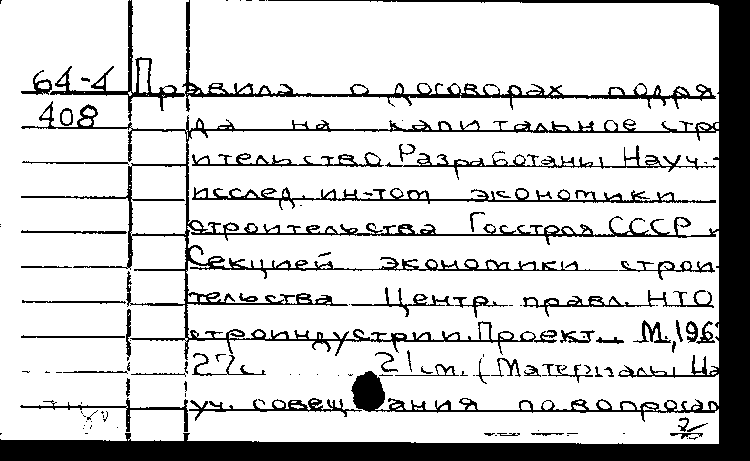 64-4 Правила о договорах подря
408 да на капитальное стро
ительство. Разработаны Науч.-
исслед. ин-том экономики
строительства Госстроя СССР и
Секцией экономики строи-
тельства Центр. правл. НТО
стройиндустрии. Проект. М., 1963
27 с. 21 см. (Материалы На
уч. совещания по вопросам